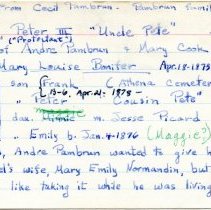 From Cecil Pambrun - Pambrun Famil
Peter III "Uncle Pete"
("Protestant")
of Andre Pambrun & Mary Cook
Mary Louise Bonifer Apr.18-1878
son Frank (Athena Cemeter
Born Apr. 21-1878
" Peter "Cousin Pete"
dau. Minnie m. Jesse Picard
" Emily b. Jan.4-1896 (Maggie?)
, Andre Pambrun wanted to give l
d's wife, Mary Emily Normandin, but
like taking it while he was living